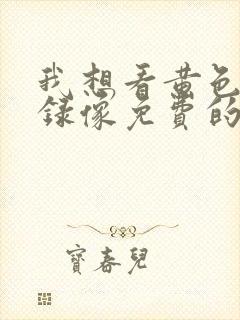 我想看黄色
录像免费的
寶春兒